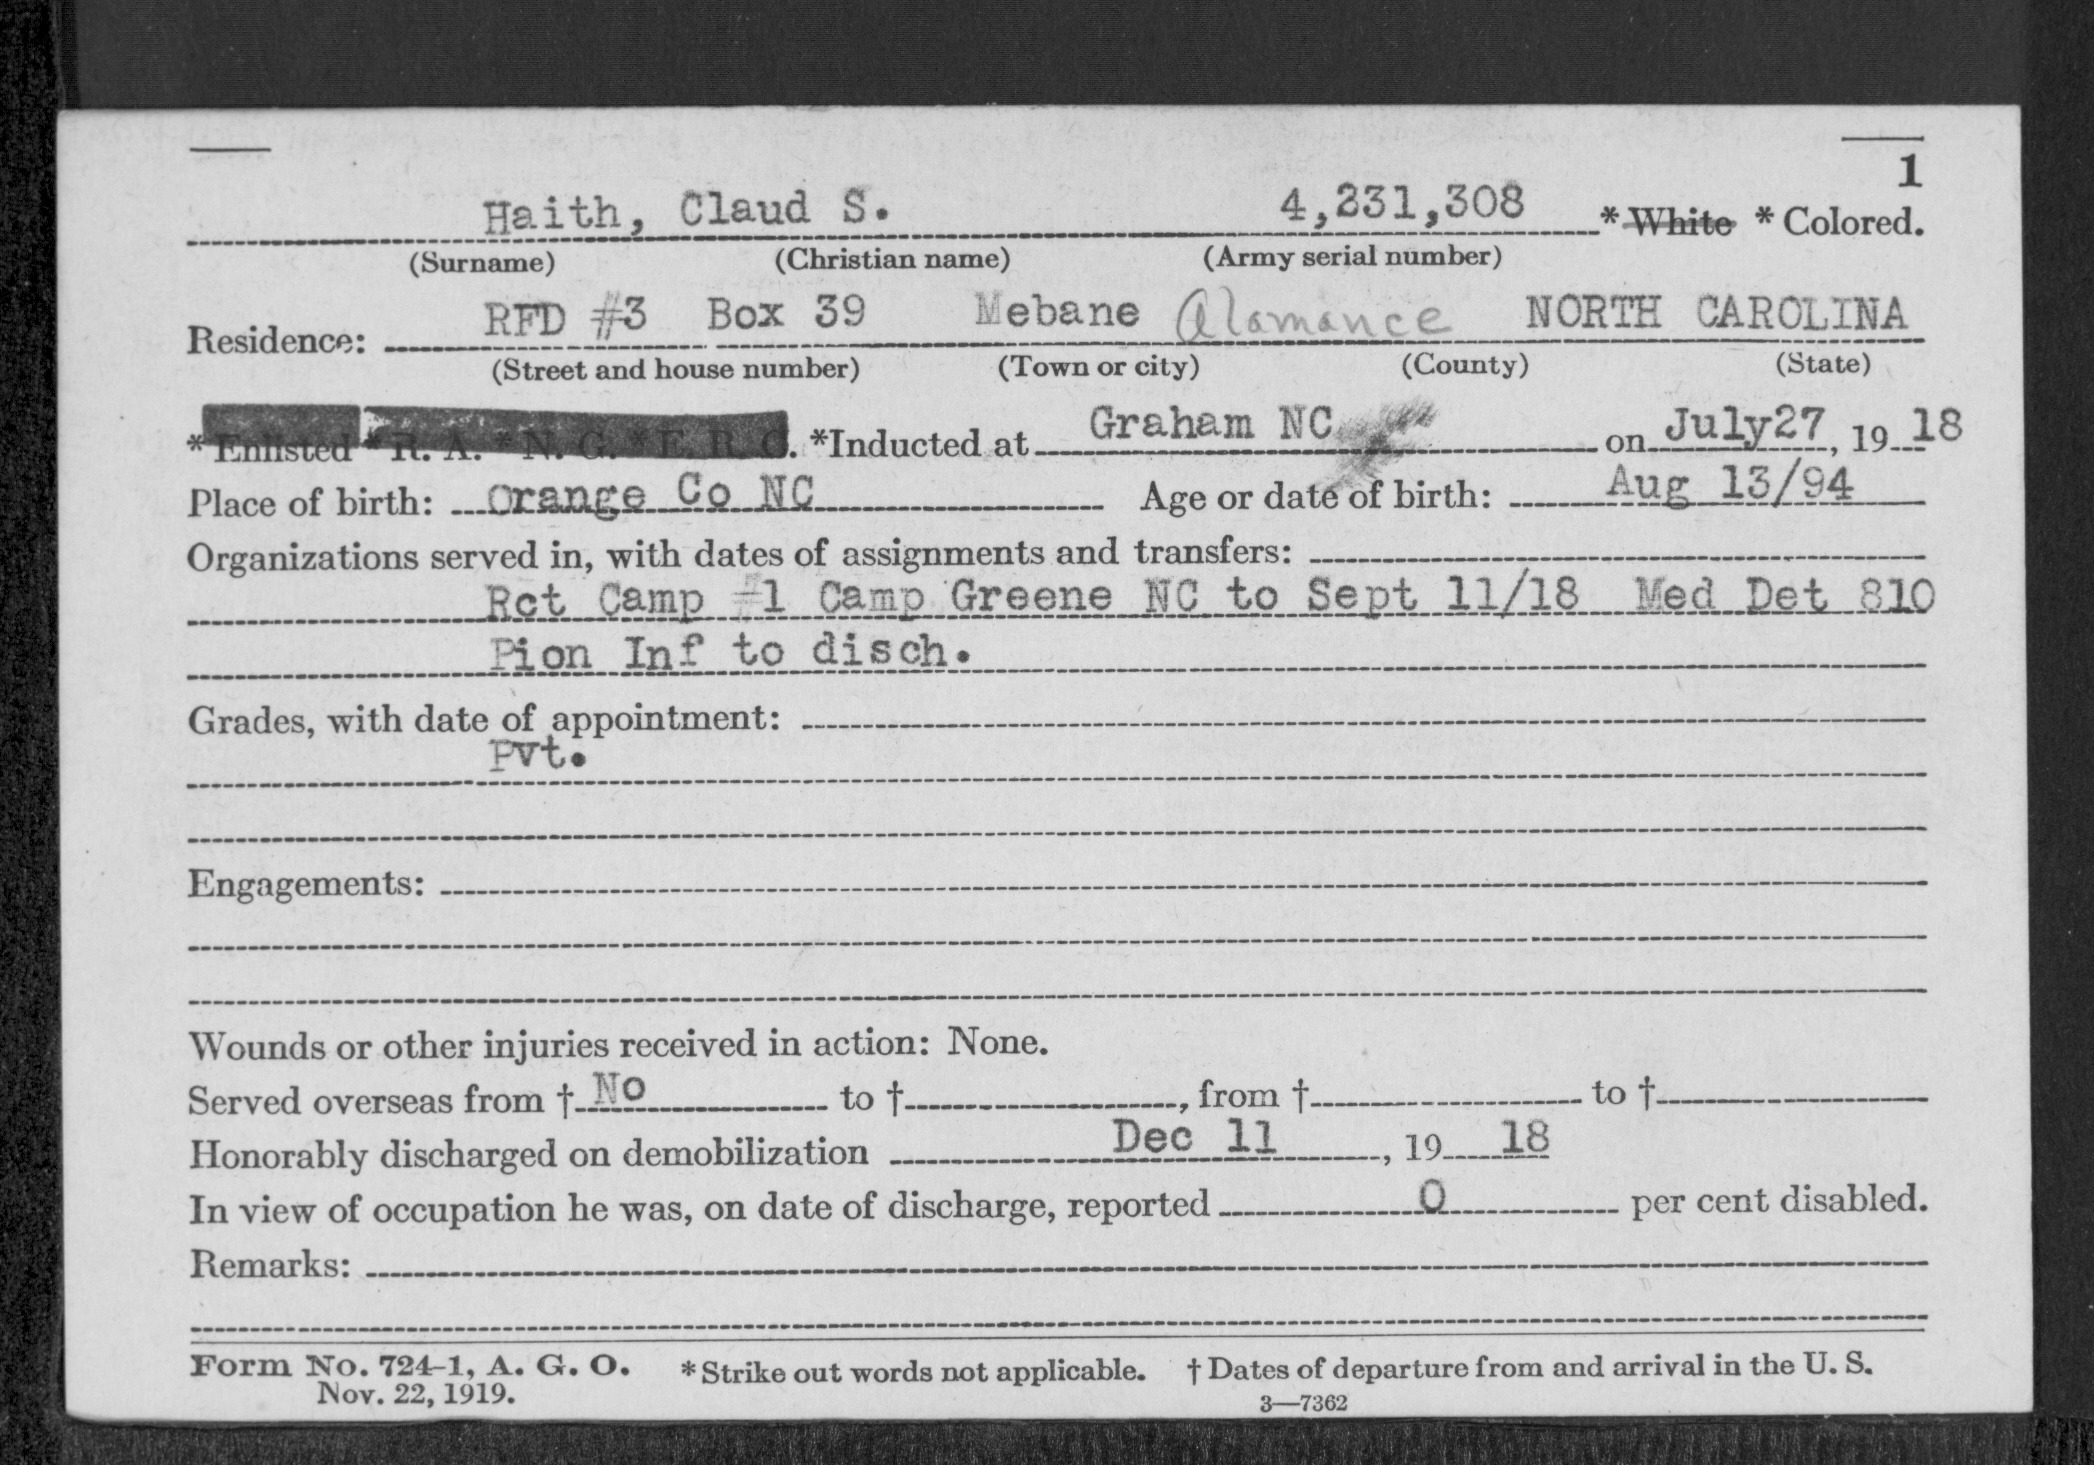 1
Haith, Claud S. 4,231,308 * White * Colored.
(Surname) (Christian name) (Army serial number)
Residence: RFD #3 Box 39 Mebane Alamance NORTH CAROLINA
(Street and house number) (Town or city) (County) (State)
* Enlisted * R. A. * N. G. * E. R. C. *Inducted at Graham NC on July27, 19 18
Place of birth: Orange Co NC Age or date of birth: Aug 13/94
Organizations served in, with dates of assignments and transfers:
Rct Camp #1 Camp Greene NC to Sept 11/18 Med Det 810
Pion Inf to disch.
Grades, with date of appointment:
Pvt.
Engagements:
Wounds or other injuries received in action: None.
Served overseas from † No to †, from † to †
Honorably discharged on demobilization Dec 11, 19 18
In view of occupation he was, on date of discharge, reported 0 per cent disabled.
Remarks:
Form No. 724-1, A. G. O. * Strike out words not applicable. † Dates of departure from and arrival in the U. S.
Nov. 22, 1919. 3—7362